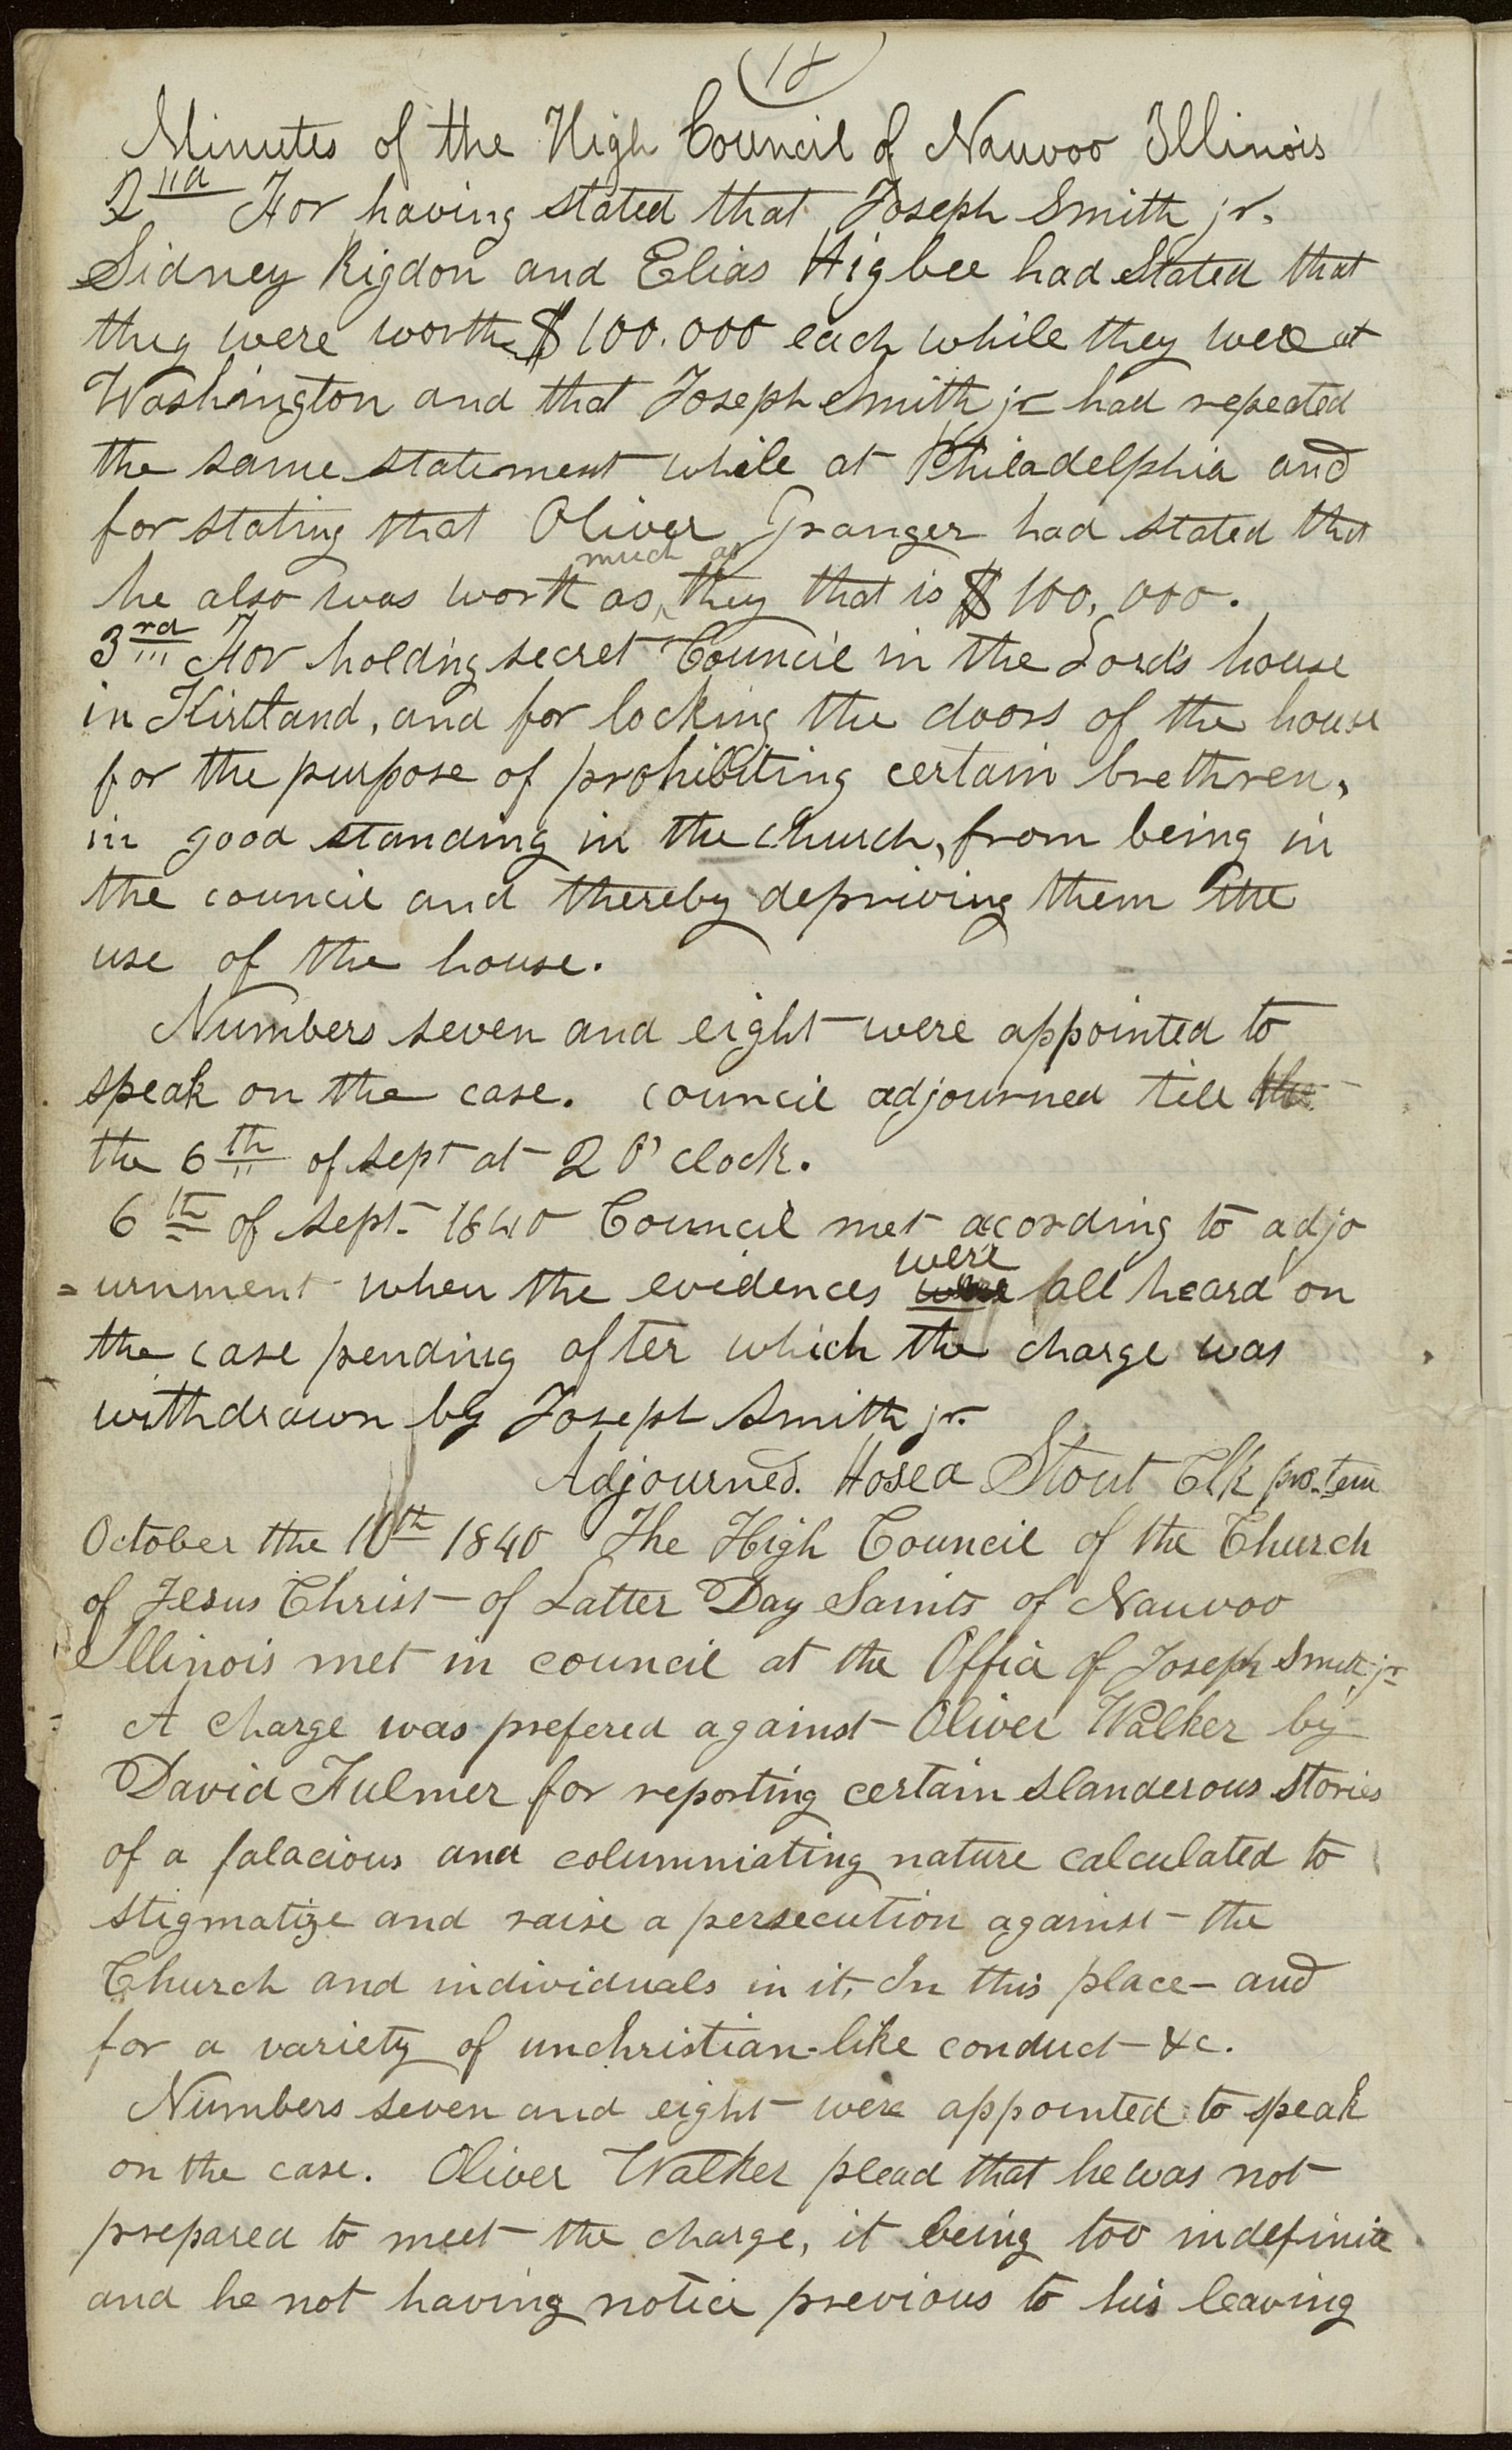 Minutes of the High Council of Nauvoo Illinois
2nd For having stated that Joseph Smith jr.
Sidney Rigdon and Elias Higbee had stated that
they were worth $100.000 each while they were at
Washington and that Joseph Smith jr had repeated
the same statement while at Philadelphia and
for stating that Oliver Granger had stated that
he also was worth as much as they that is $100,000.
3rd For holding secret Council in the Lord's house
in Kirtland, and for locking the doors of the house
for the purpose of prohibiting certain brethren,
in good standing in the Church, from being in
the council and thereby depriving them the
use of the house.
Numbers seven and eight were appointed to
speak on the case. council adjourned till the
the 6th of Sept at 2 O'clock.
6th of Sept. 1840 Council met acording to adjo
=urnment when the evidences were were all heard on
the case pending after which the charge was
withdrawn by Joseph Smith jr.
Adjourned. Hosea Stout Clk pro.tem
October the 10th 1840 The High Council of the Church
of Jesus Christ of Latter Day Saints of Nauvoo
Illinois met in council at the Office of Joseph Smith jr
A charge was prefered against Oliver Walker by
David Fulmer for reporting certain slanderous stories
of a falacious and columniating nature calculated to
stigmatize and raise a persecution against the
Church and individuals in it, In this place and
for a variety of unchristian-like conduct &c.
Numbers seven and eight were appointed to speak
on the case. Oliver Walker plead that he was not
prepared to meet the charge, it being too indefinite
and he not having notice previous to his leaving